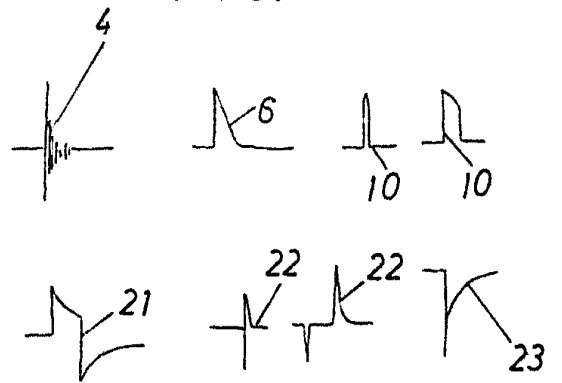 4
6
10
10
21
22
22
23